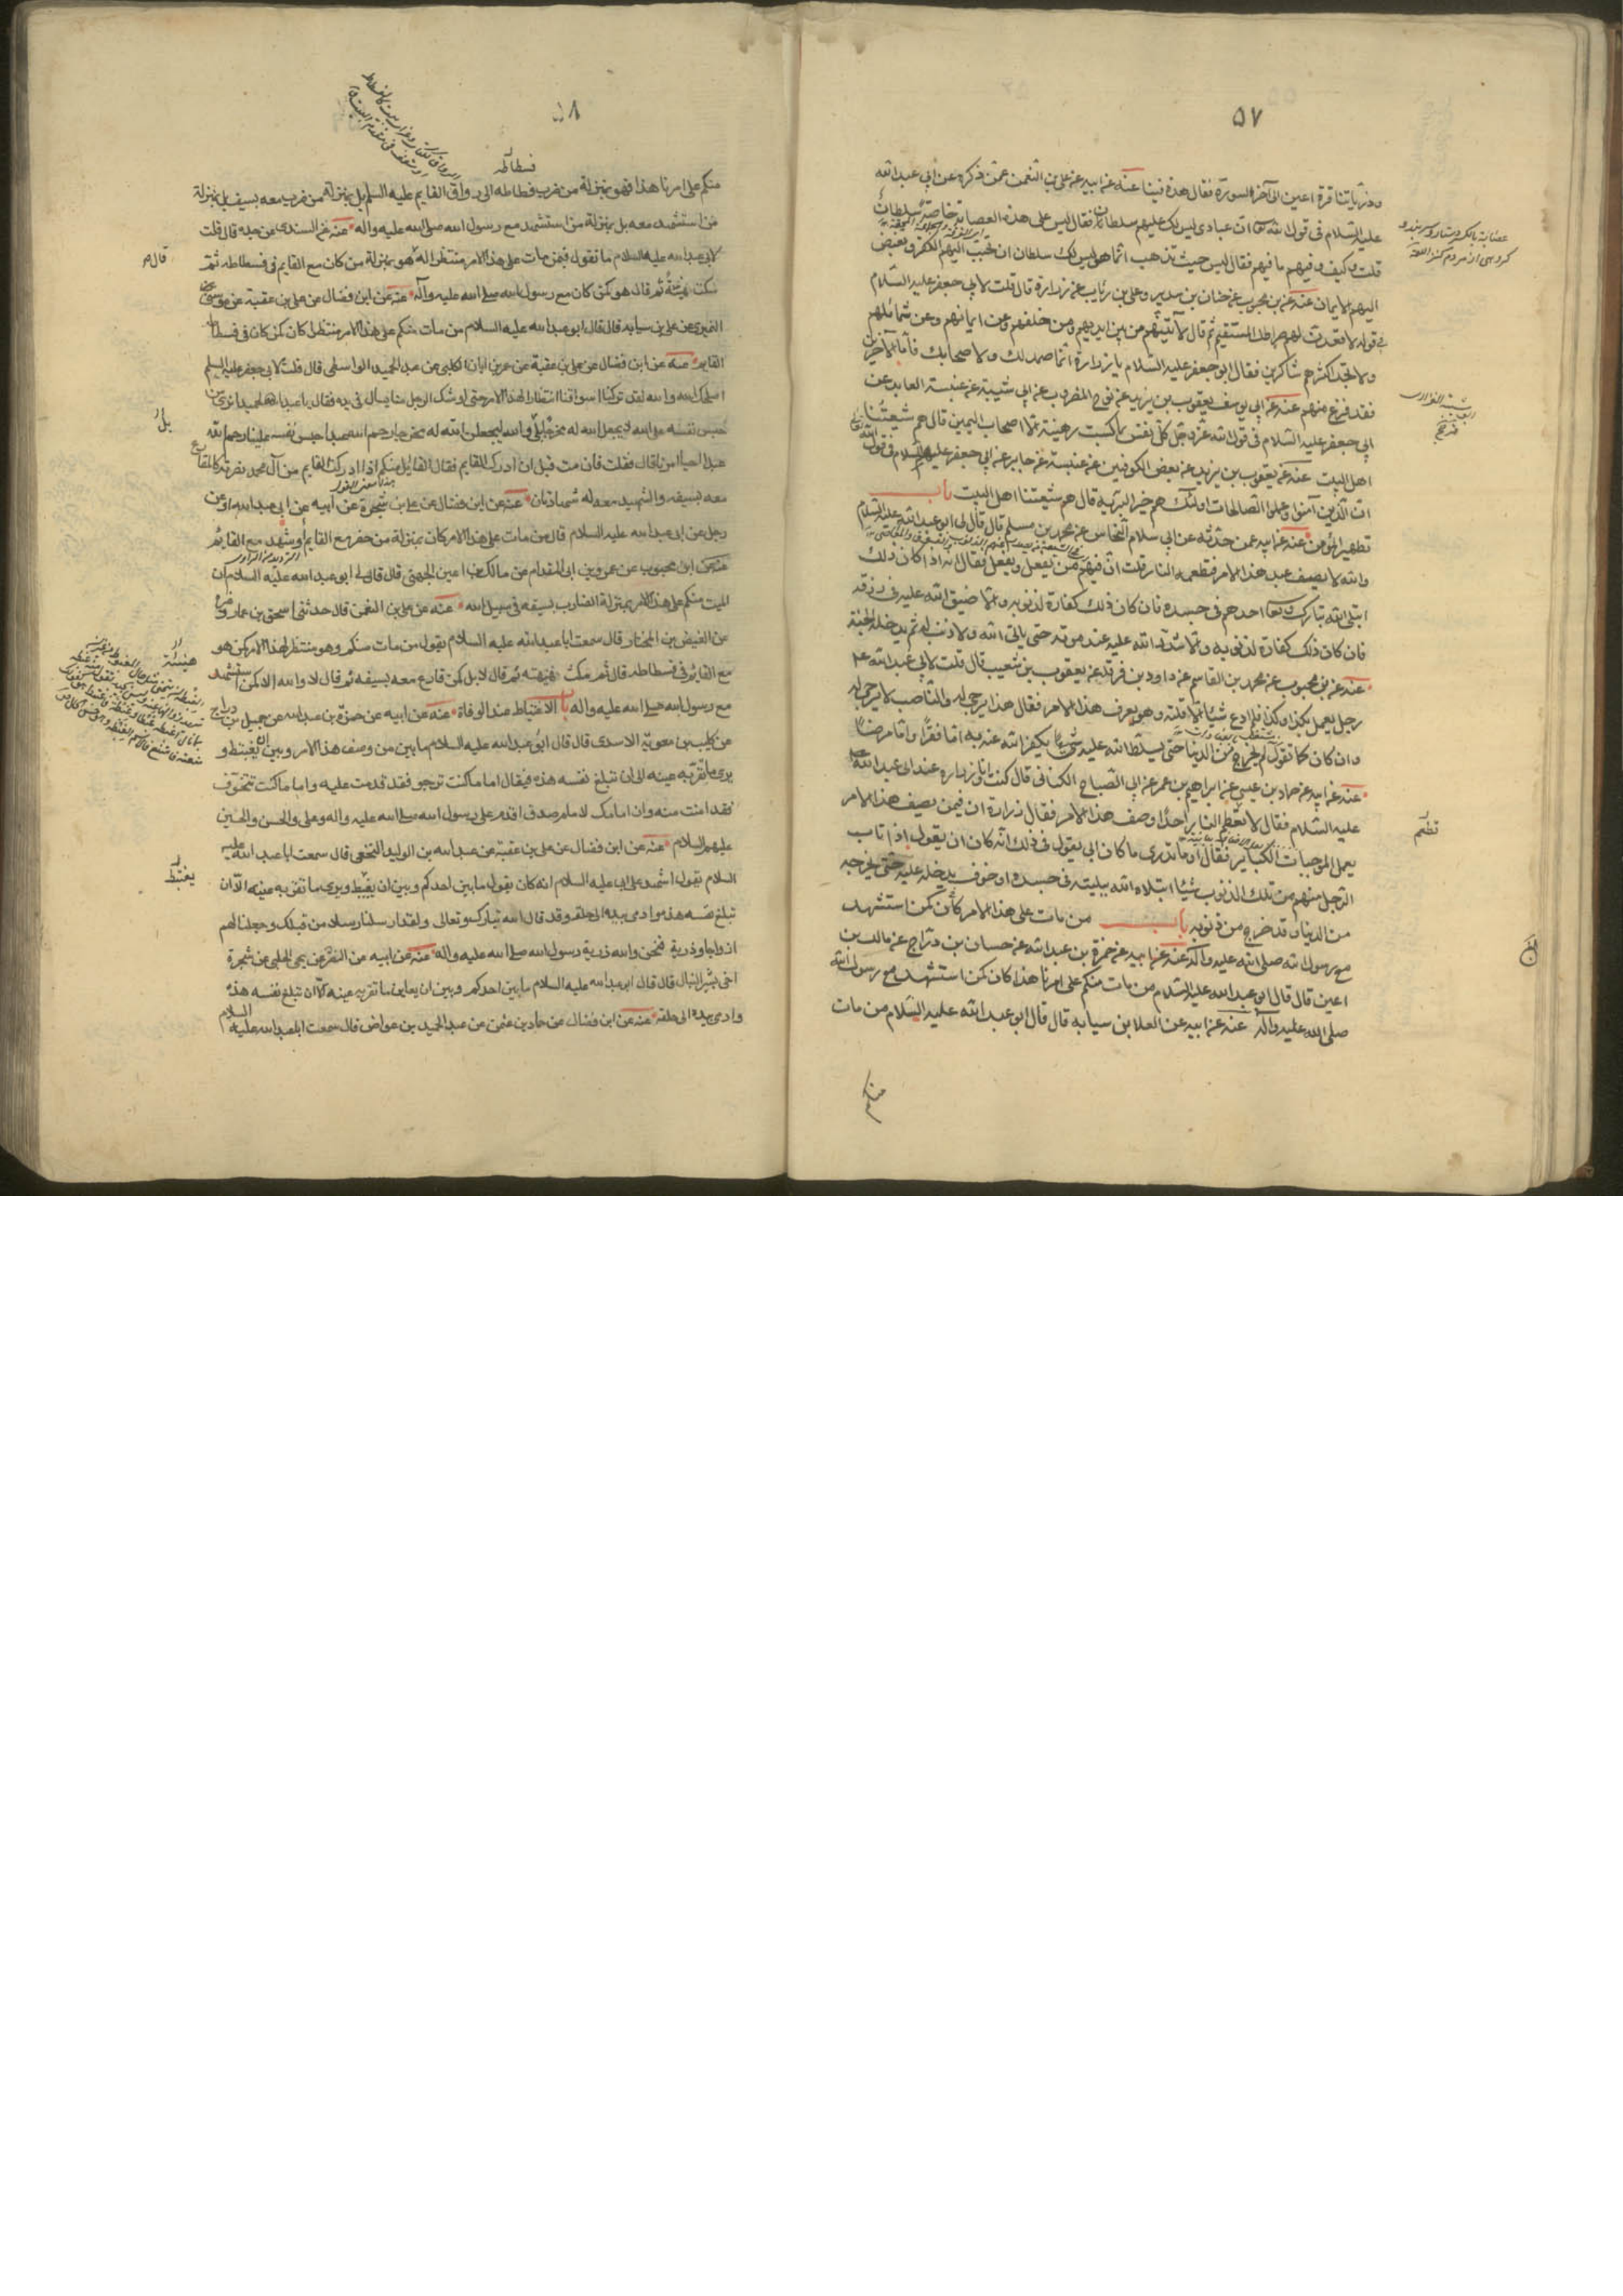 ٥٧
وذرياتنا قرة اعين الى آخر السورة فقال هذه فينا عنه عن ابيه عن علي بن النعمن عمن ذكره عن ابي عبد الله
عليه السلام في قول الله تعا ان عبادي ليس لك عليهم سلطان فقال ليس على هذه العصابة خاصة سلطان
قلت وكيف وفيهم ما فيهم فقال ليس حيث تذهب انما هو ليس لك سلطان ان تحبب اليهم الكفر وتبغض
اليهم الايمان عنه عن بن محبوب عن حنان بن سدير وعلي بن رئاب عن زرارة قال قلت لابي جعفر عليه السلام
في قوله لاقعدن لهم صراطك المستقيم ثم قال لآتينهم من بين ايديهم ومن خلفهم وعن ايمانهم وعن شمائلهم
ولا تجد اكثرهم شاكرين فقال ابو جعفر عليه السلام يا زرارة انما صمد لك ولاصحابك فأما الآخرين
فقد فرغ منهم عنه عن ابي يوسف يعقوب بن يزيد عن نوح المضروب عن ابي شيبة عن عنبسة العابد عن
ابي جعفر عليه السلام في قول الله عز وجل كل نفس بما كسبت رهينة الا اصحاب اليمين قال هم شيعتنا
اهل البيت عنه عن يعقوب بن يزيد عن بعض الكوفيين عن عنبسة عن جابر عن ابي جعفر عليه السلام في قول الله
ان الذين آمنوا وعملوا الصالحات اولئك هم خير البرية قال هم شيعتنا اهل البيت باب
تطهير المؤمن عنه عن ابيه عمن حدثه عن ابي سلام النحاس عن محمد بن مسلم قال قال لي ابو عبد الله عليه السلام
والله لا يصف عبد هذا الامر فتطعمه النار قلت ان فيهم من يفعل ويفعل فقال انه اذا كان ذلك
ابتلى الله تبارك وتعا احدهم في جسده فان كان ذلك كفارة لذنوبه والا ضيق الله عليه في رزقه
فان كان ذلك كفارة لذنوبه والا شدد الله عليه عند موته حتى ياتي الله ولا ذنب له ثم يدخله الجنة
عنه عن بن محبوب عن محمد بن القاسم عن داود بن فرقد عن يعقوب بن شعيب قال قلت لابي عبد الله ع
رجل يعمل بكذا وكذا فلم ادع شيئا الا قلته وهو يعرف هذا الامر فقال هذا يرجى له والناصب لا يرجى له
وان كان كما تقول لم يخرج من الدنيا حتى يسلط الله عليه شيئا يكفر الله عنه به اما فقرا واما مرضا
عنه عن ابيه عن حماد بن عيسى عن ابراهيم بن عمر عن ابي الصباح الكناني قال كنت انا وزرارة عند ابي عبد الله
عليه السلام فقال لا تطعم النار احدا وصف هذا الامر فقال زرارة ان فيمن يصف هذا الامر
يعمل الموجبات الكبائر فقال او ما تدري ما كان ابي يقول في ذلك انه كان ان يقول اذا تاب
الرجل منهم من تلك الذنوب شيئا ابتلاه الله ببلية في جسده او خوف يدخله عليه حتى يخرجه
من الدنيا وقد خرج من ذنوبه باب من مات على هذا الامر كان كمن استشهد
مع رسول الله صلى الله عليه وآله عنه عن ابيه عن حمزة بن عبد الله عن حسان بن دراج عن مالك بن
اعين قال قال ابو عبد الله عليه السلام من مات منكم على امرنا هذا كان كمن استشهد مع رسول الله
صلى الله عليه وآله عنه عن ابيه عن العلا بن سيابة قال قال ابو عبد الله عليه السلام من مات
منكم
تطعم
٥٨
فسطاطه
منكم على امرنا هذا فهو بمنزلة من ضرب فسطاطه الى رواق القايم عليه السلم بل بمنزلة من ضرب معه بسيفه بل بمنزلة
من استشهد معه بل بمنزلة من استشهد مع رسول الله صلى الله عليه واله عنه عن السندي عن جده قال قلت
لابي عبد الله عليه السلام ما تقول فيمن مات على هذا الامر منتظرا له هو بمنزلة من كان مع القايم في فسطاطه ثم
سكت هنيئة ثم قال هو كمن كان مع رسول الله صلى الله عليه وآله عنه عن ابن فضال عن علي بن عقبة عن موسى
النميري عن علي بن سيابه قال قال ابو عبد الله عليه السلام من مات منكم على هذا الامر منتظرا كان كمن كان في فسطاط
القايم عنه عن ابن فضال عن علي بن عقبة عن عمر بن ابان الكلبي عن عبد الحميد الواسطي قال قلت لابي جعفر عليه السلم
اصلحك الله والله لقد تركنا اسواقنا انتظارا لهذا الامر حتى اوشك الرجل منا يسال في يده فقال يا عبد الحميد اترى من
حبس نفسه على الله لا يجعل الله له مخرجا بلى والله ليجعلن الله له مخرجا رحم الله عبدا حبس نفسه علينا رحم الله
عبدا احيا امرنا قال فقلت فان مت قبل ان ادرك القايم فقال القايل منكم اذا ادركت القايم من آل محمد نصرته كالمقارع
معه بسيفه والشهيد معه له شهادتان عنه عن ابن فضال عن علي بن شجرة عن ابيه عن ابي عبد الله او عن
رجل عن ابي عبد الله عليه السلام قال من مات على هذا الامر كان بمنزلة من حضر مع القايم وشهد مع القايم
عنه عن ابن محبوب عن عمرو بن ابي المقدام عن مالك بن اعين الجهني قال قال لي ابو عبد الله عليه السلام ان
الميت منكم على هذا الامر بمنزلة الضارب بسيفه في سبيل الله عنه عن علي بن النعمن قال حدثني اسحق بن عمار وغيره
عن الفيض بن المختار قال سمعت ابا عبد الله عليه السلام يقول من مات منكم وهو منتظر لهذا الامر كمن هو
مع القايم في فسطاطه قال ثم مكث هنيئة ثم قال لا بل كمن قارع معه بسيفه ثم قال لا والله الا كمن استشهد
مع رسول الله صلى الله عليه واله باب الاغتباط عند الوفاة عنه عن ابيه عن حمزة بن عبد الله عن جميل بن دراج
عن كليب بن معوية الاسدي قال قال ابو عبد الله عليه السلام ما بين من وصف هذا الامر وبين ان يغتبط و
يرى ما تقر به عينه الا ان تبلغ نفسه هذه فيقال اما ما كنت ترجو فقد قدمت عليه واما ما كنت تتخوف
فقد امنت منه وان امامك لامام صدق اقدم على رسول الله صلى الله عليه واله وعلي والحسن والحسين
عليهم السلام عنه عن ابن فضال عن علي بن عقبة عن عبد الله بن الوليد النخعي قال سمعت ابا عبد الله عليه
السلام يقول اشهد على ابي عليه السلام انه كان يقول ما بين احدكم وبين ان يغتبط ويرى ما تقر به عينه الا ان
تبلغ نفسه هذه واومى بيده الى حلقه وقد قال الله تبارك وتعالى ولقد ارسلنا رسلا من قبلك وجعلنا لهم
ازواجا وذرية فنحن والله ذرية رسول الله صلى الله عليه واله عنه عن ابيه عن النضر عن يحيى الحلبي عن شجرة
اخي بشير النبال قال قال ابو عبد الله عليه السلام ما بين احدكم وبين ان يعاين ما تقر به عينه الا ان تبلغ نفسه هذه
واومى بيده الى حلقه عنه عن ابن فضال عن حماد بن عثمن عن عبد الحميد بن عواض قال سمعت ابا عبد الله عليه السلام
قال م
بل
هنيئة
يغتبط